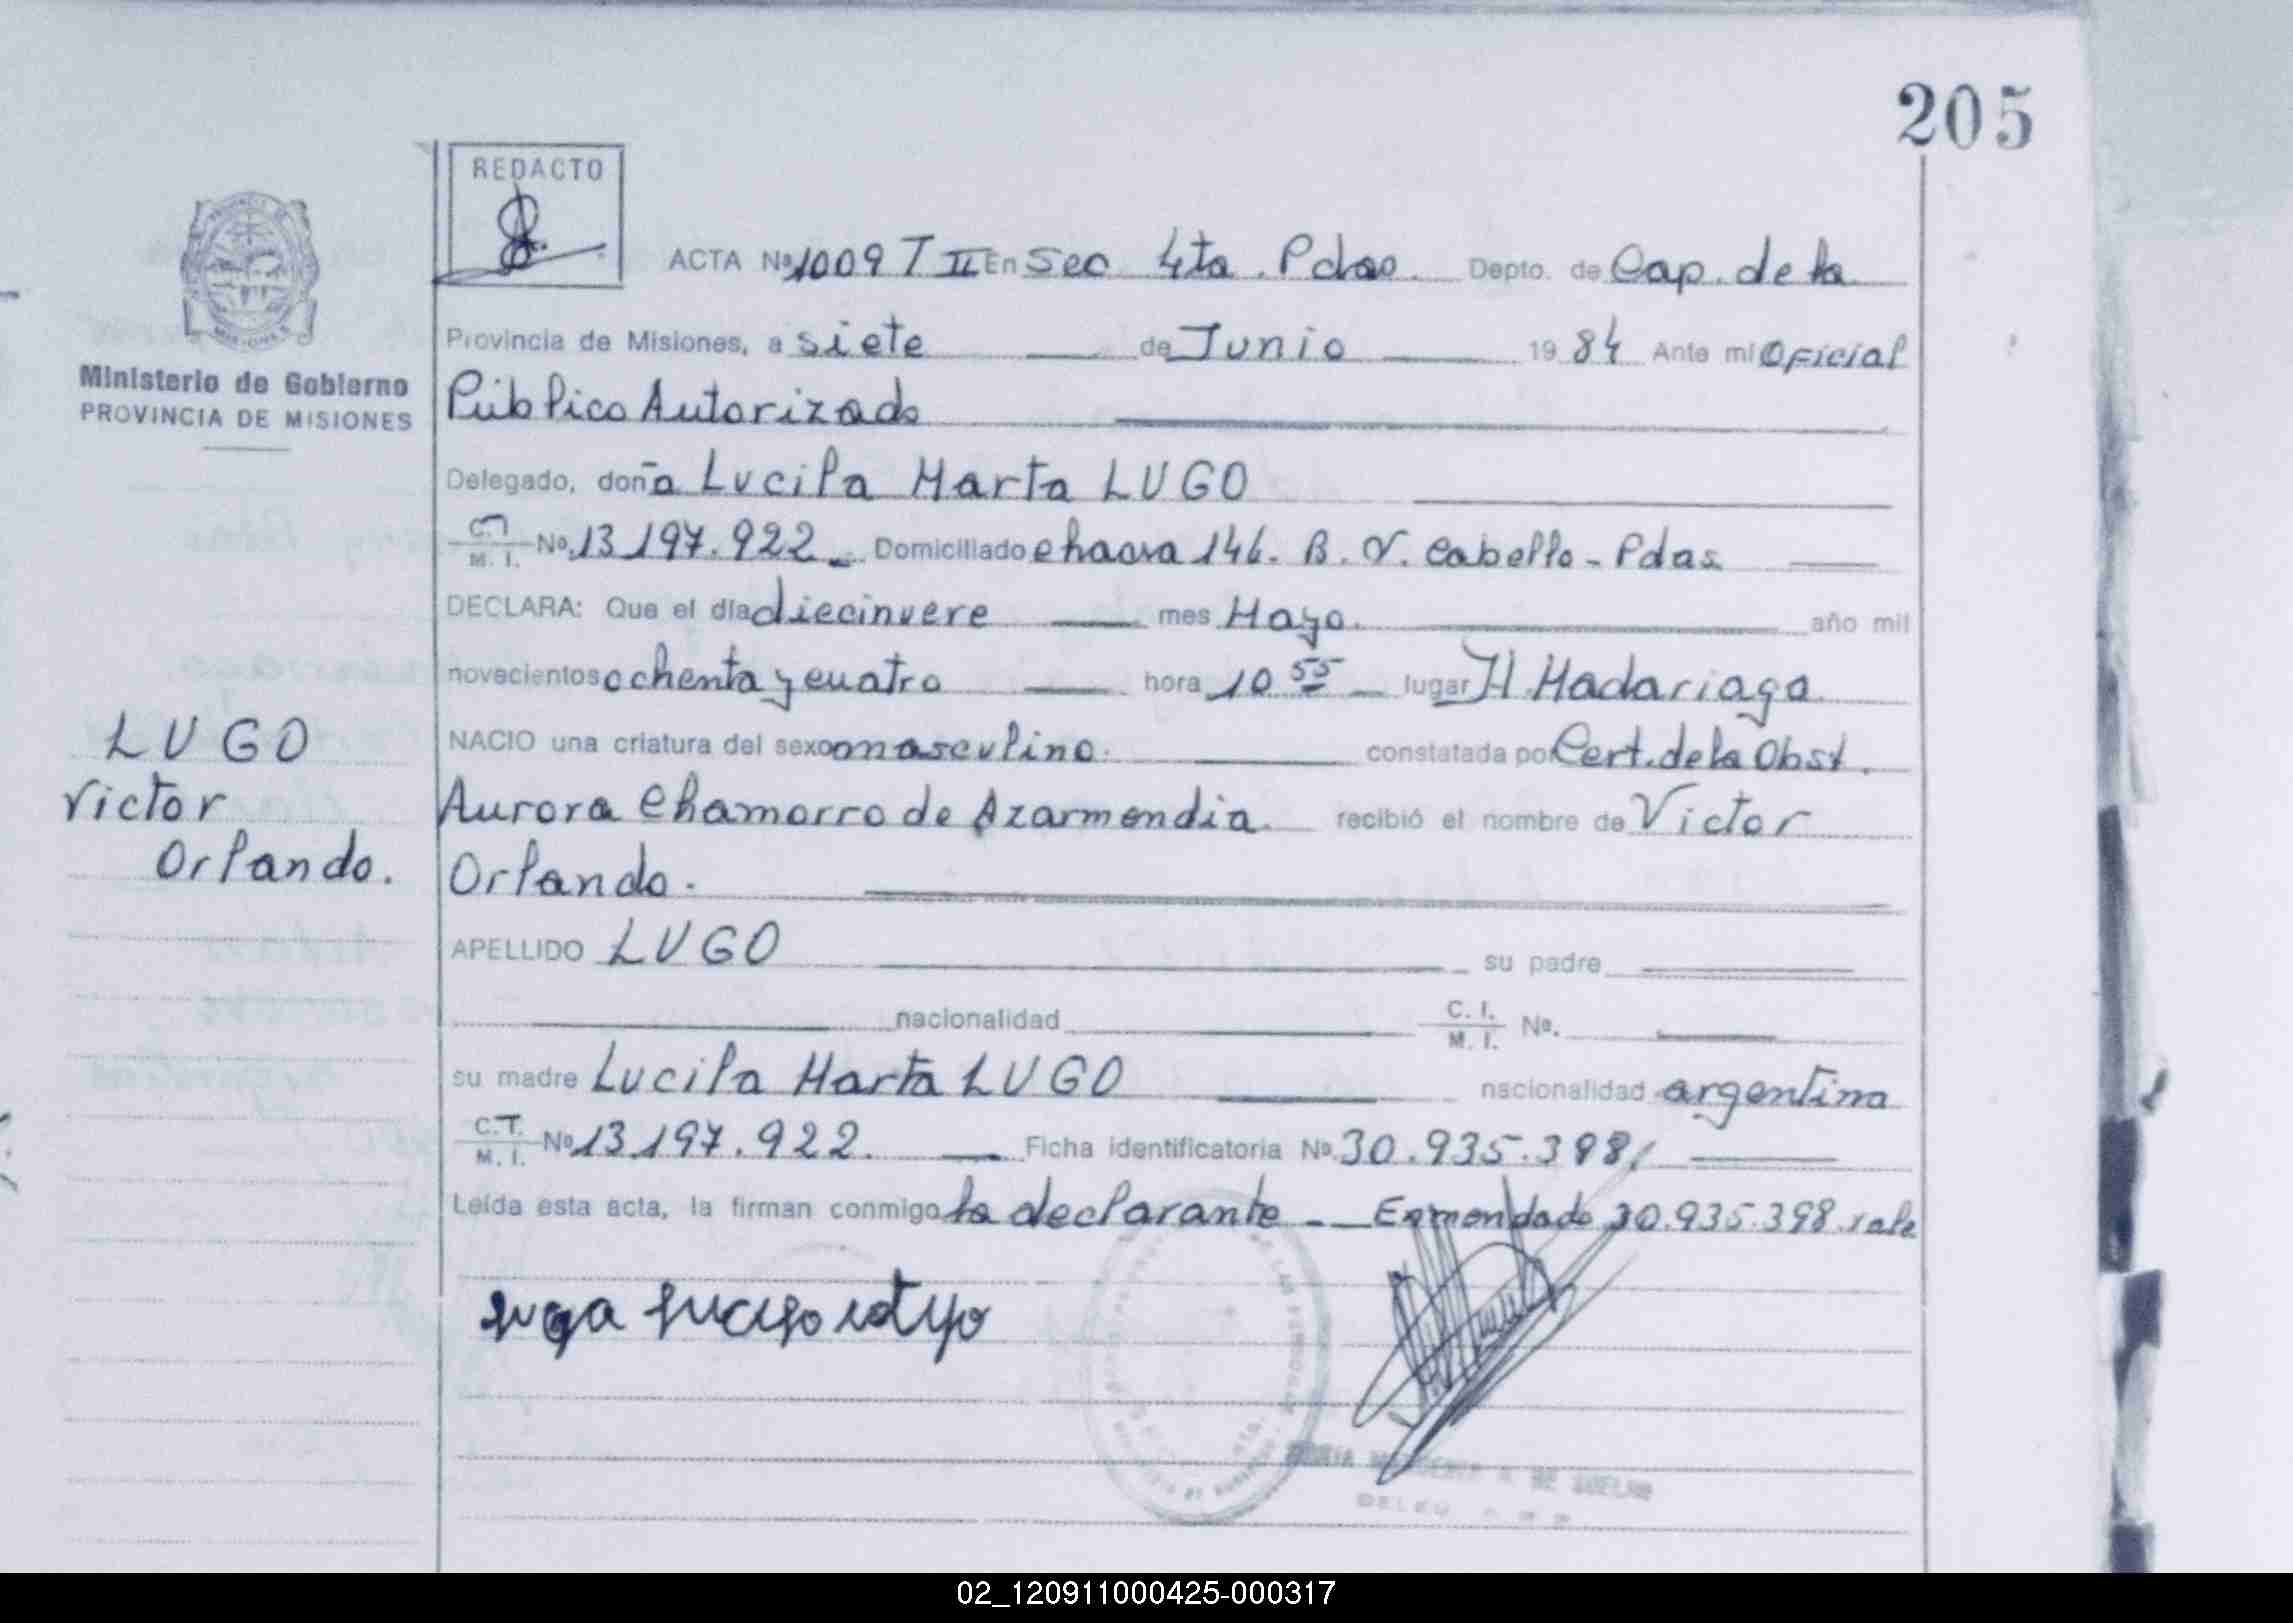 205
REDACTO
ACTA Nº 1009 T II En Sec 4ta. Pdas. Depto. de Cap. de la
Provincia de Misiones, a siete de Junio 19 84 Ante mi Oficial
Ministerio de Gobierno
PROVINCIA DE MISIONES
Público Autorizado
Delegado, doña Lucila Marta LUGO
C.I. M. I. Nº 13.197.922 Domiciliado chacra 146. B. V. Cabello - Pdas.
DECLARA: Que el día diecinueve mes Mayo. año mil
novecientos ochenta y cuatro hora 10 55 lugar H. Madariaga
NACIO una criatura del sexo masculino. constatada por Cert. de la Obst.
Aurora Chamorro de Azarmendia. recibió el nombre de Victor
Orlando.
LUGO
Victor
Orlando.
APELLIDO LUGO su padre
nacionalidad C. I. M. I. Nº.
su madre Lucila Marta LUGO nacionalidad argentina
C.I. M. I. Nº 13.197.922. Ficha identificatoria Nº 30.935.398/
Leída esta acta, la firman conmigo la declarante - Enmendado 30.935.398 vale
DE
02_120911000425-000317